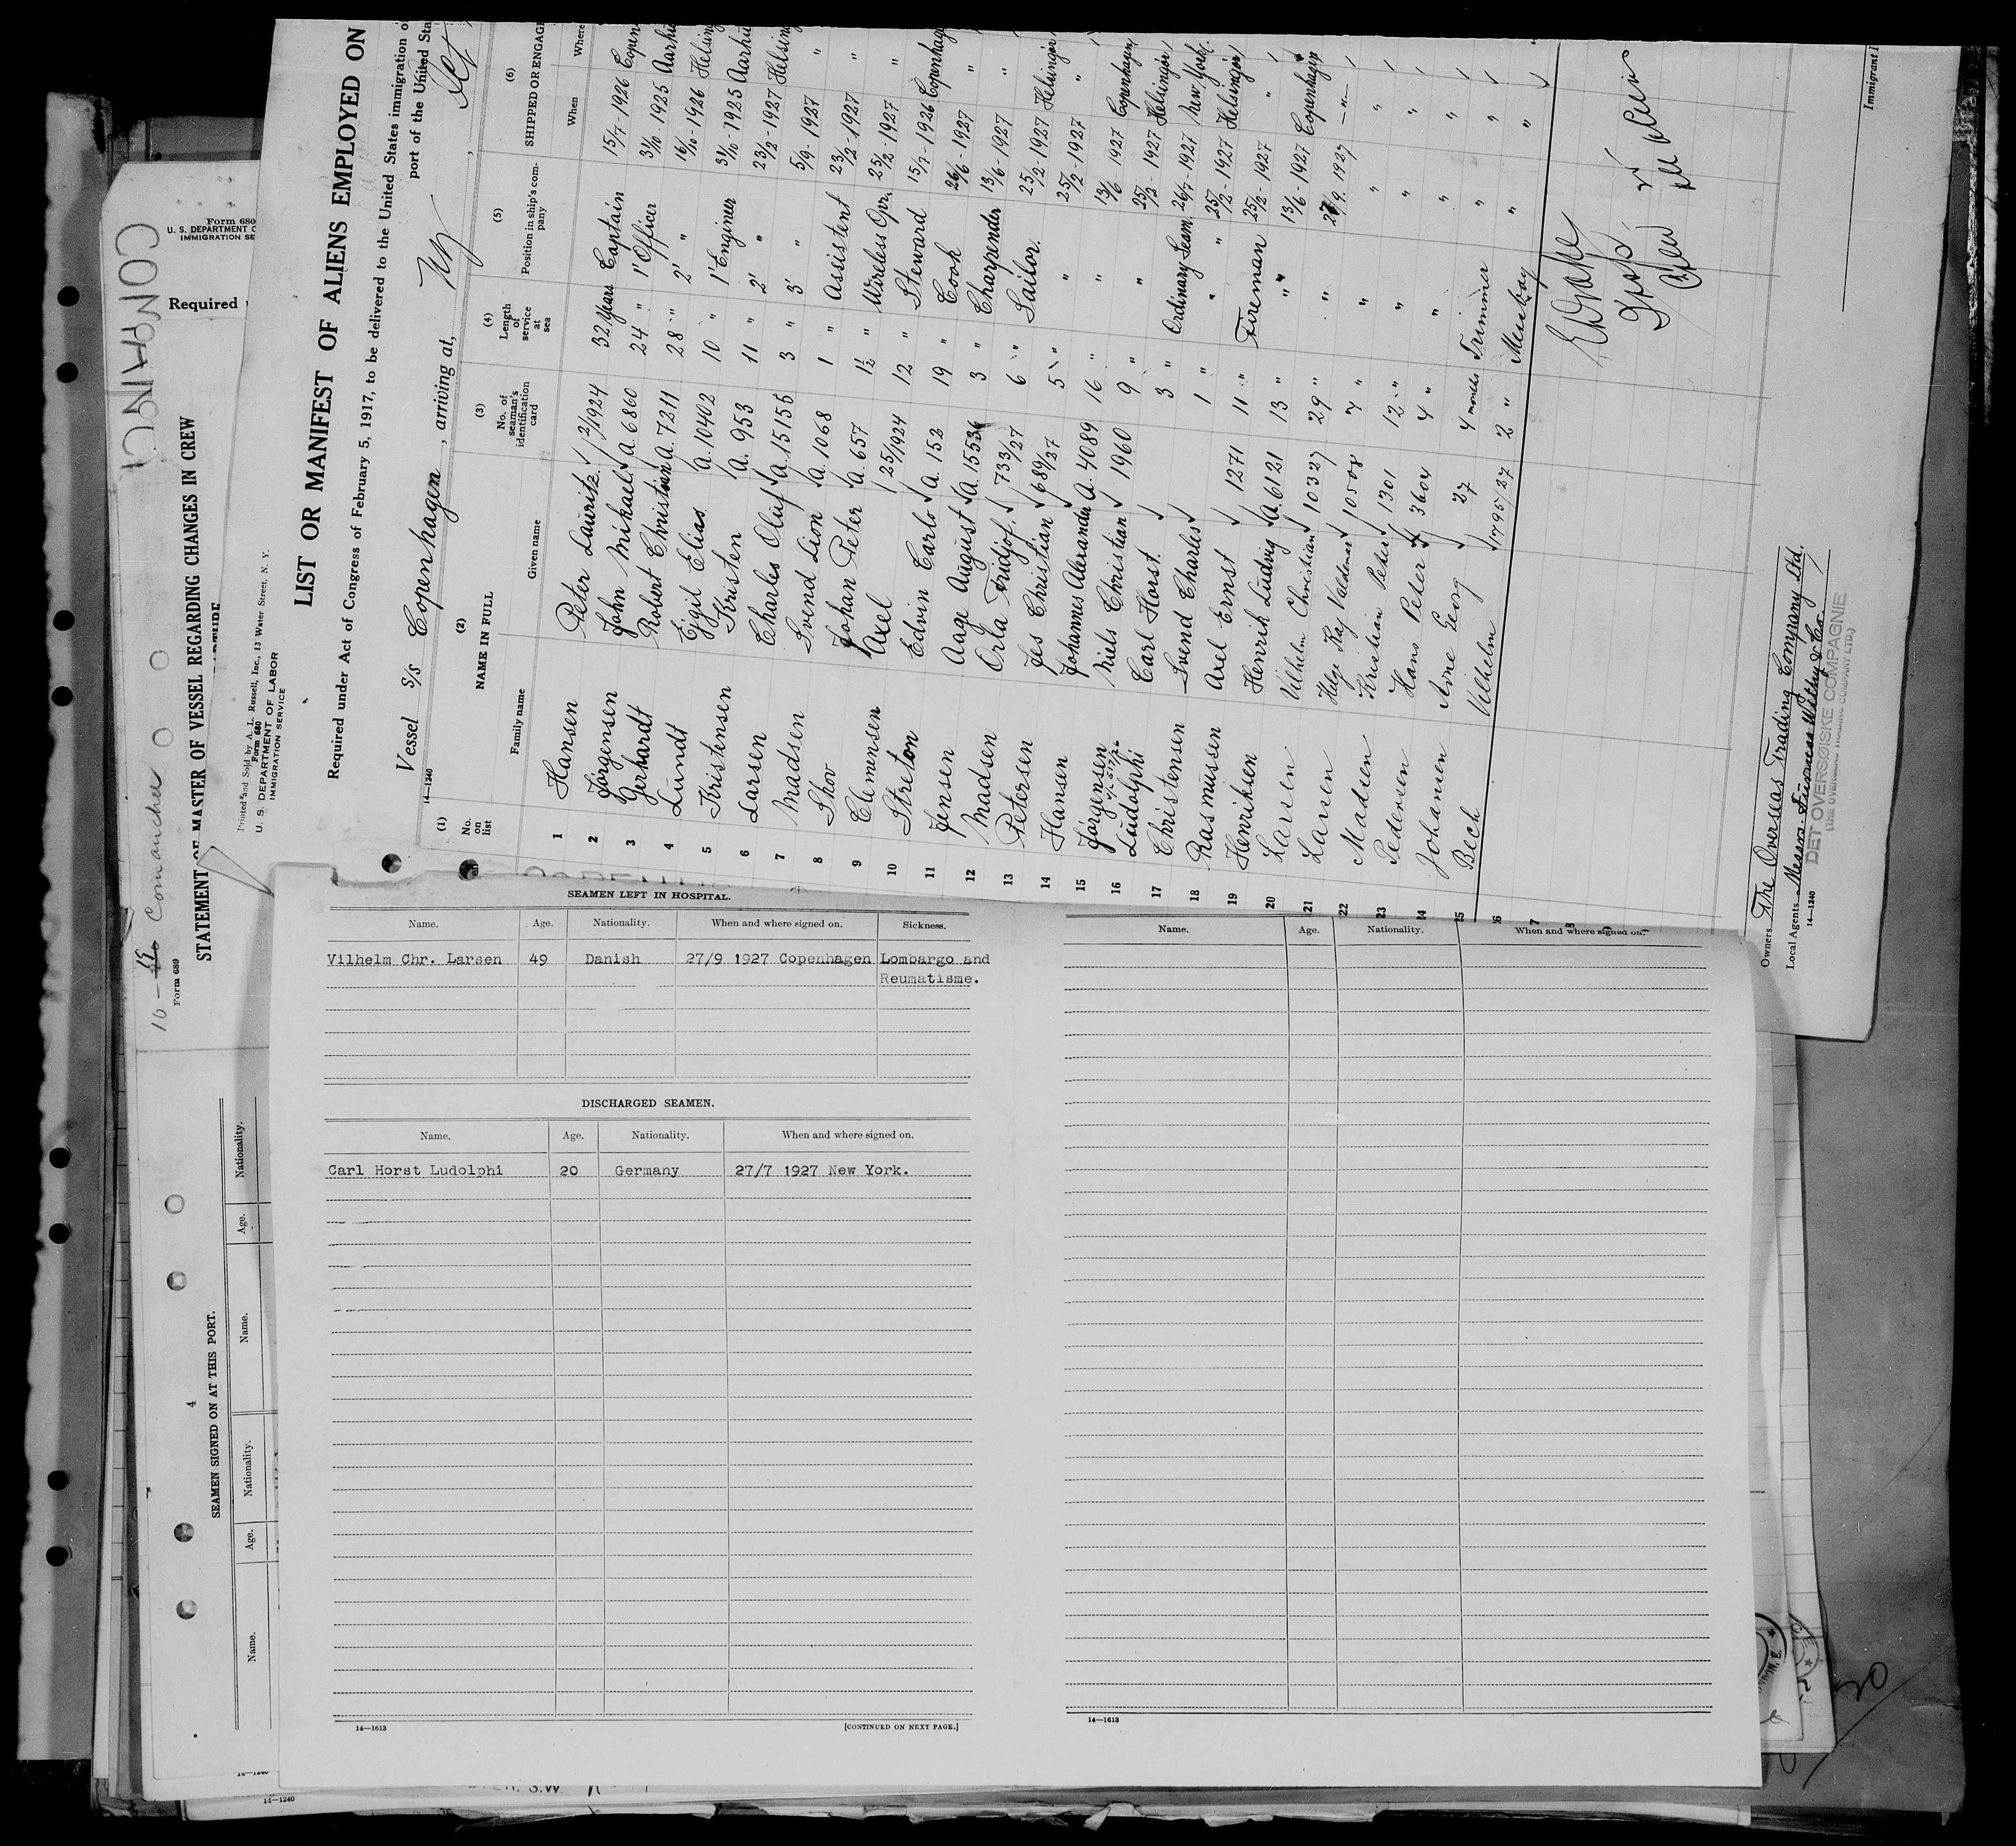 CONPHINCI
10-15 Comanchee
Form 689
STATEMENT OF MASTER OF VESSEL REGARDING CHANGES IN CREW
Form 680
U. S. DEPARTMENT O
IMMIGRATION SE
Required
Printed and Sold by A. L. Russell, Inc., 13 Water Street, N. Y.
Form 680
U. S. DEPARTMENT OF LABOR
IMMIGRATION SERVICE
LIST OR MANIFEST OF ALIENS EMPLOYED ON
Required under Act of Congress of February 5, 1917, to be delivered to the United States immigration o
port of the United Sta
Vessel S/s Copenhagen, arriving at, NY, Oct
14—1240
(1) (2) (3) (4) (5) (6)
No. on list NAME IN FULL No. of seaman's identification card Length of service at sea Position in ship's company SHIPPED OR ENGAGE
Family name Given name When Where
1 Hansen Peter Lauritz 2/1924 32 Years Captain 15/7-1926 Copen
2 Jørgensen John Mikael A. 6860 24 " 1' Officer 31/10-1925 Aarhu
3 Gerhardt Robert Christian A. 7211 28 " 2' " 16/10-1926 Helsing
4 Lundt Ejgil Elias A. 10402 10 " 1' Engineer 31/10-1925 Aarhu
5 Kristensen Kristen A. 953 11 " 2' " 23/2-1927 Helsing
6 Larsen Charles Oluf A. 15155 3 " 3' " 5/9-1927 "
7 Madsen Svend Lion A. 1068 1 " Assistent 23/2-1927 "
8 Skv Johan Peter A. 657 1½ " Wireless Opr. 25/2-1927 "
9 Clemensen Axel 25/1924 12 " Steward 15/7-1926 Copenhag
10 Streton Edvin Carlo A. 152 19 " Cook 26/6-1927 "
11 Jensen Aage August A. 15536 3 " Charpender 13/6-1927 "
12 Madsen Orla Fridjof. 733/27 6 " Sailor. 25/2-1927 Helsingør
13 Petersen Jes Christian 689/27 5 " " 25/2-1927 "
14 Hansen Johannes Alexander A. 4089 16 " " 13/6 1927 Copenhagen
15 Jørgensen Niels Christian 1960 9 " " 25/2-1927 Helsingør
16 Ludolphi Carl Horst. 3 " Ordinary Seam. 26/7-1927 New York.
17 Christensen Svend Charles 1 " " " 25/2-1927 Helsingør
18 Rasmussen Axel Ernst 1271 11 " Fireman 25/2-1927 "
19 Henriksen Henrik Ludvig A. 6121 13 " " 13/6-1927 Copenhagen
20 Larsen Vilhelm Christian 10327 29 " " 27/9. 1927 —"—
21 Larsen Helge Kaj Valdemar 10508 7 " " " "
22 Madsen Kristian Peter 1301 12 " " " "
23 Pedersen Hans Peter 3604 4 " " " "
24 Johansen Arne Georg 27 4 months Trimmer " "
25 Bech Vilhelm 1795/27 2 " Messboy " "
26
27
28
29
Immigrant I
Owners The Overseas Trading Company Ltd.
Local Agents Messrs. Furness Withy & Co.
14—1240
DET OVERSØISKE COMPAGNIE
(THE OVERSEAS TRADING COMPANY LTD.)
SEAMEN LEFT IN HOSPITAL.
Name. Age. Nationality. When and where signed on. Sickness.
Vilhelm Chr. Larsen 49 Danish 27/9 1927 Copenhagen Lombargo and
Reumatisme.
DISCHARGED SEAMEN.
Name. Age. Nationality. When and where signed on.
Carl Horst Ludolphi 20 Germany 27/7 1927 New York.
14—1613 [CONTINUED ON NEXT PAGE.]
Name. Age. Nationality. When and where signed on.
14—1613
4
SEAMEN SIGNED ON AT THIS PORT.
Name. Age. Nationality. Name. Age. Nationality.
14—1240
14—1240